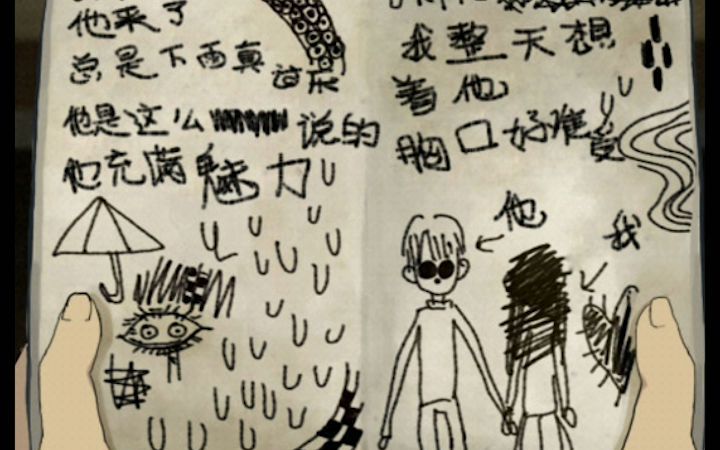 他来了
总是下雨真
音乐
他是这么
说的
他充满魅力
我整天想
着他
胸口好难受
他
我